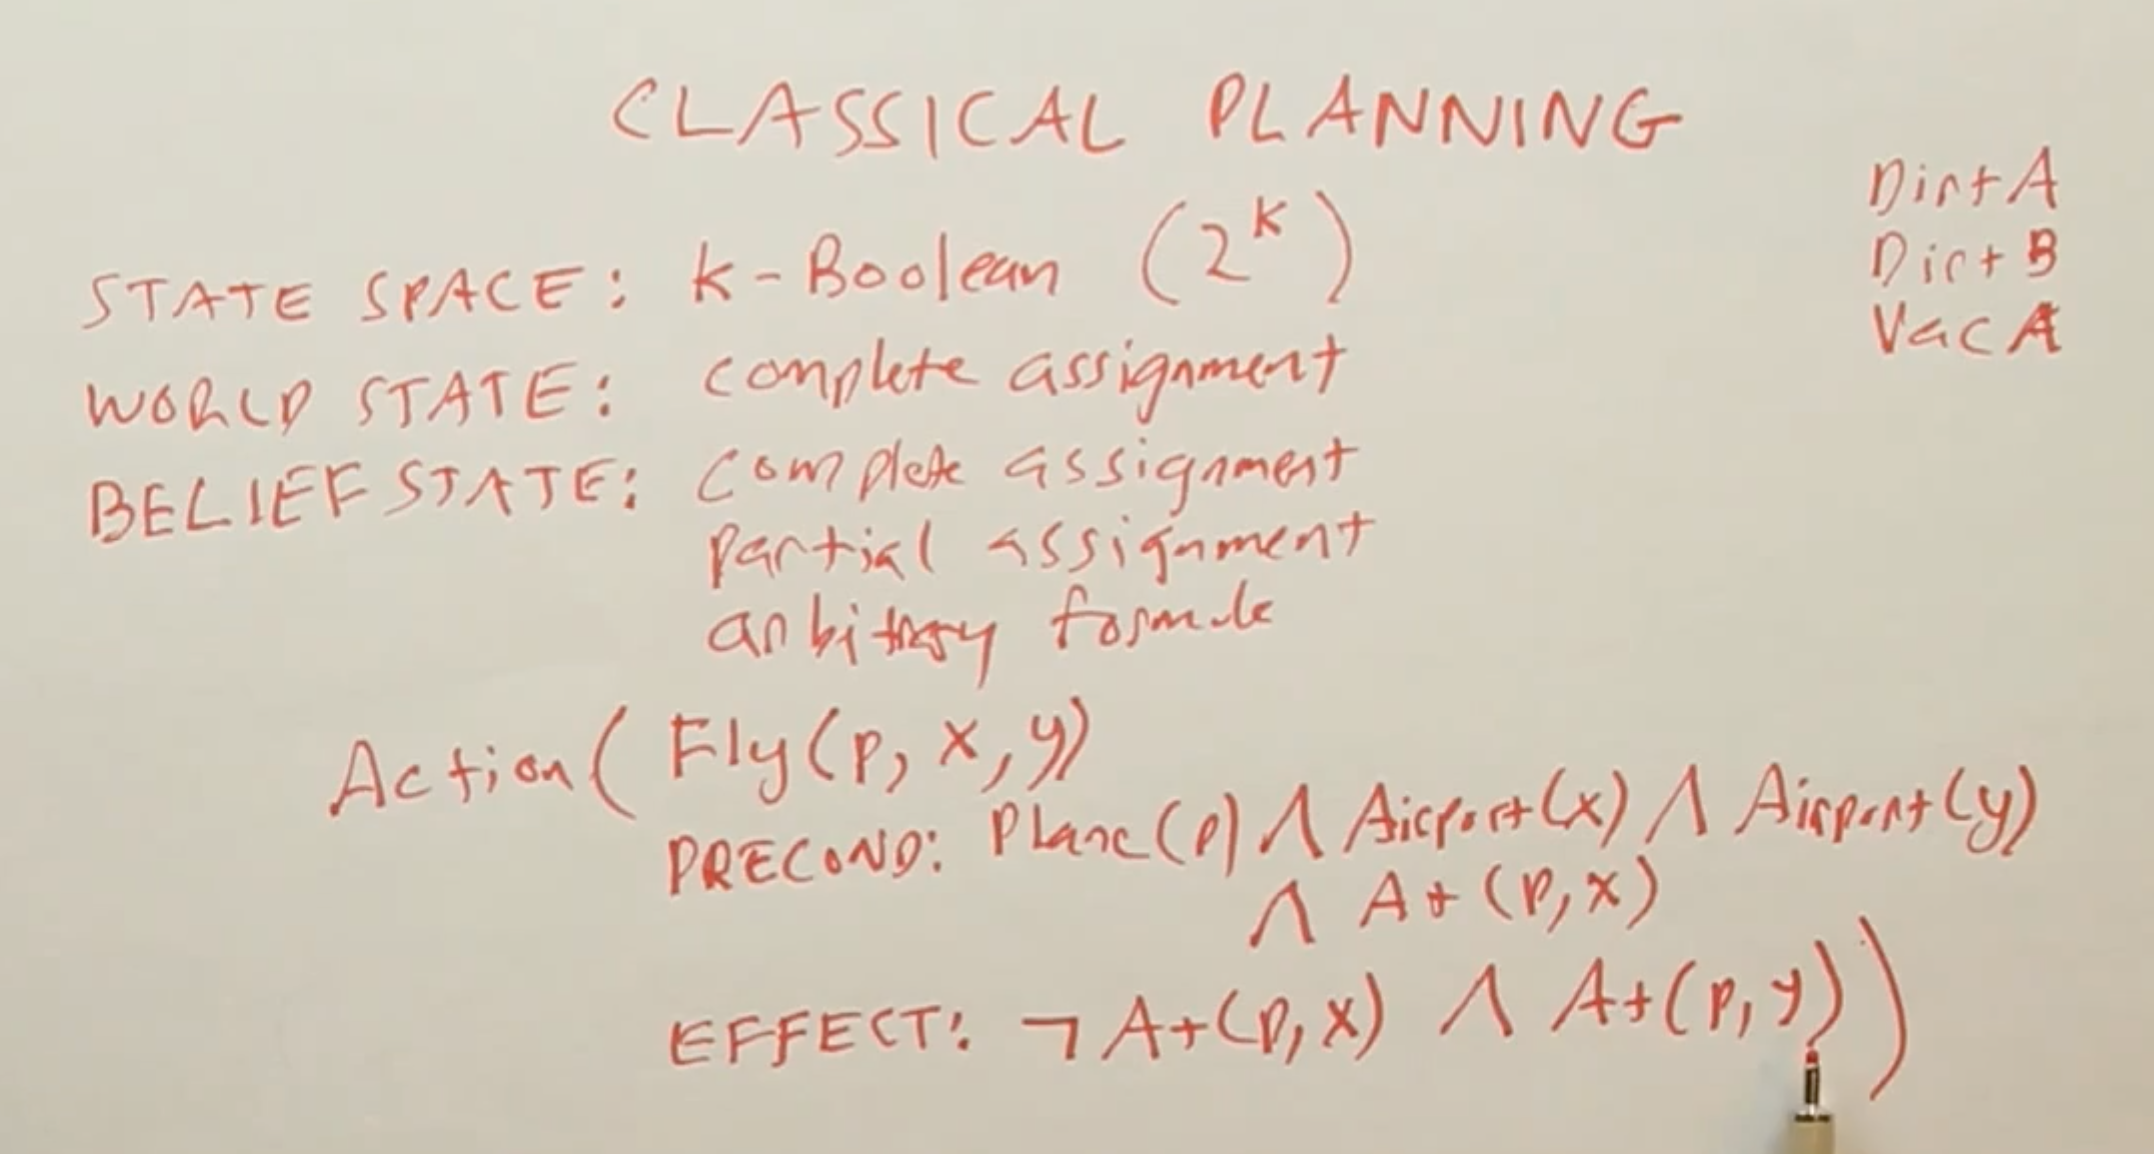 CLASSICAL PLANNING
Dirt A
Dirt B
Vac A
STATE SPACE: k-Boolean (2^k)
WORLD STATE: complete assignment
BELIEF STATE: complete assignment
partial assignment
arbitrary formula
Action(Fly(p, x, y)
PRECOND: Plane(p) ∧ Airport(x) ∧ Airport(y)
∧ At(p, x)
EFFECT: ¬At(p, x) ∧ At(p, y))